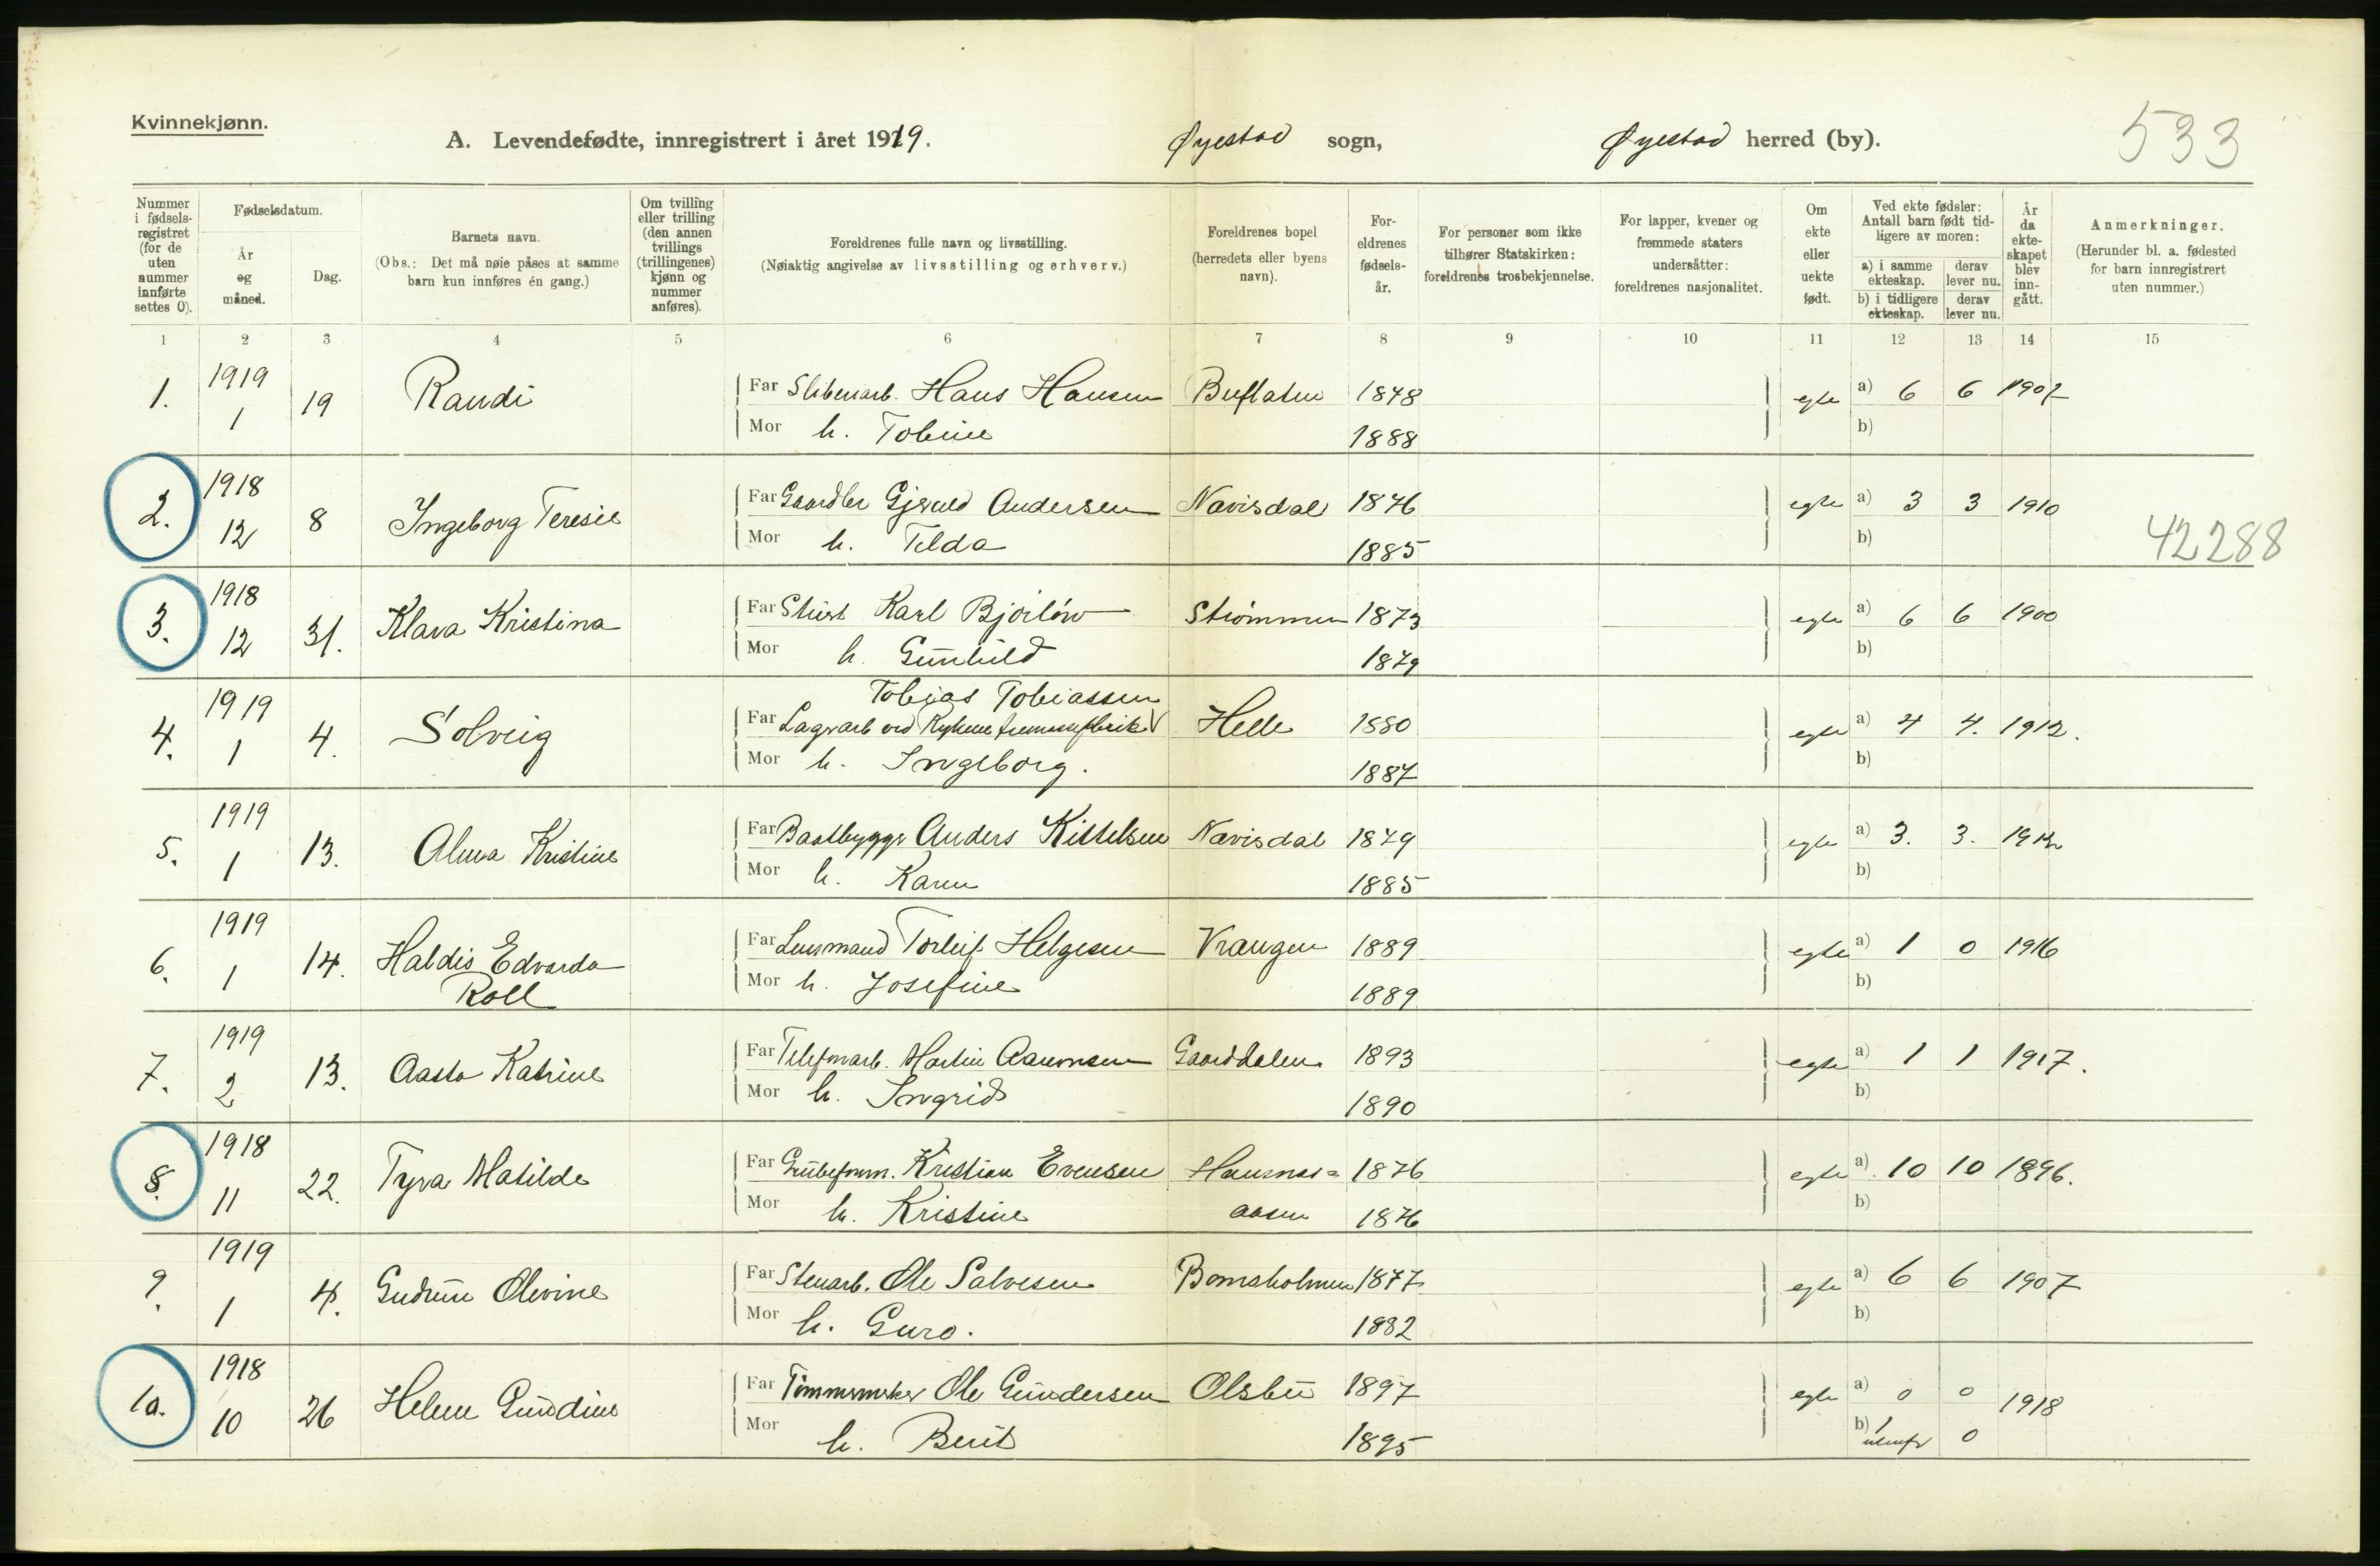 Kvinnekjønn.
A. Levendefødte, innregistrert i året 1919. Øyestad sogn, Øyestad herred (by). 533
Nummer i fødsels-registret (for de uten nummer innførte settes 0).
Fødselsdatum.
År og måned.
Dag.
Barnets navn.
(Obs.: Det må nøie påses at samme barn kun innføres én gang.)
Om tvilling eller trilling (den annen tvillings (trillingenes) kjønn og nummer anføres).
Foreldrenes fulle navn og livsstilling.
(Nøiaktig angivelse av livsstilling og erhverv.)
Foreldrenes bopel (herredets eller byens navn).
For-eldrenes fødsels-år.
For personer som ikke tilhører Statskirken: foreldrenes trosbekjennelse.
For lapper, kvener og fremmede staters undersåtter: foreldrenes nasjonalitet.
Om ekte eller uekte født.
Ved ekte fødsler: Antall barn født tid-ligere av moren:
a) i samme ekteskap. derav lever nu.
b) i tidligere ekteskap. derav lever nu.
År da ekte-skapet blev inn-gått.
Anmerkninger.
(Herunder bl. a. fødested for barn innregistrert uten nummer.)
1 2 3 4 5 6 7 8 9 10 11 12 13 14 15
1. 1919 1 19 Randi Far Sliberiarb. Hans Hansen Buflaten 1848 egte a) 6 6 1907
Mor h. Tobine 1888 b)
2. 1918 12 8 Ingeborg Teresie Far Gjeruld Andersen Navisdal 1876 egte a) 3 3 1910
Mor h. Telda 1885 b) 42288
3. 1918 12 31. Klara Kristina Far Karl Strømmen 1873 egte a) 6 6 1900
Mor h. Gunhild 1879 b)
Tobias Tobiassen
4. 1919 1 4. Solveig Far Lagerarb ved Rykene Helle 1880 egte a) 4 4. 1912.
Mor h. Ingeborg. 1887 b)
5. 1919 1 13. Alma Kristine Far Baatbygger Anders Kittelsen Navisdal 1879 egte a) 3. 3. 1912
Mor h. Karen 1885 b)
6. 1919 1 14. Haldis Edvarda Roll Far Lensmand Torleif Helgesen Vrangen 1889 egte a) 1 0 1916
Mor h. Josefine 1889 b)
7. 1919 2 13. Aasta Katrine Far Telefonarb. Martin Aanonsen Gaarddalen 1893 egte a) 1 1 1917.
Mor h. Ingrid 1890 b)
8. 1918 11 22. Tyra Matilde Far Grubeform. Kristian Evensen 1876 egte a) 10 10 1896.
Mor h. Kristine aasen 1876 b)
9. 1919 1 4. Gudrun Olevine Far Stenarb. Ole Salvesen Bomsholmen 1877 egte a) 6 6 1907
Mor h. Guro. 1882 b)
10. 1918 10 26 Helene Gundine Far Tømmermker Ole Gundersen Olsbu 1897 egte a) 0 0 1918
Mor h. Berit 1895 b) 1 0